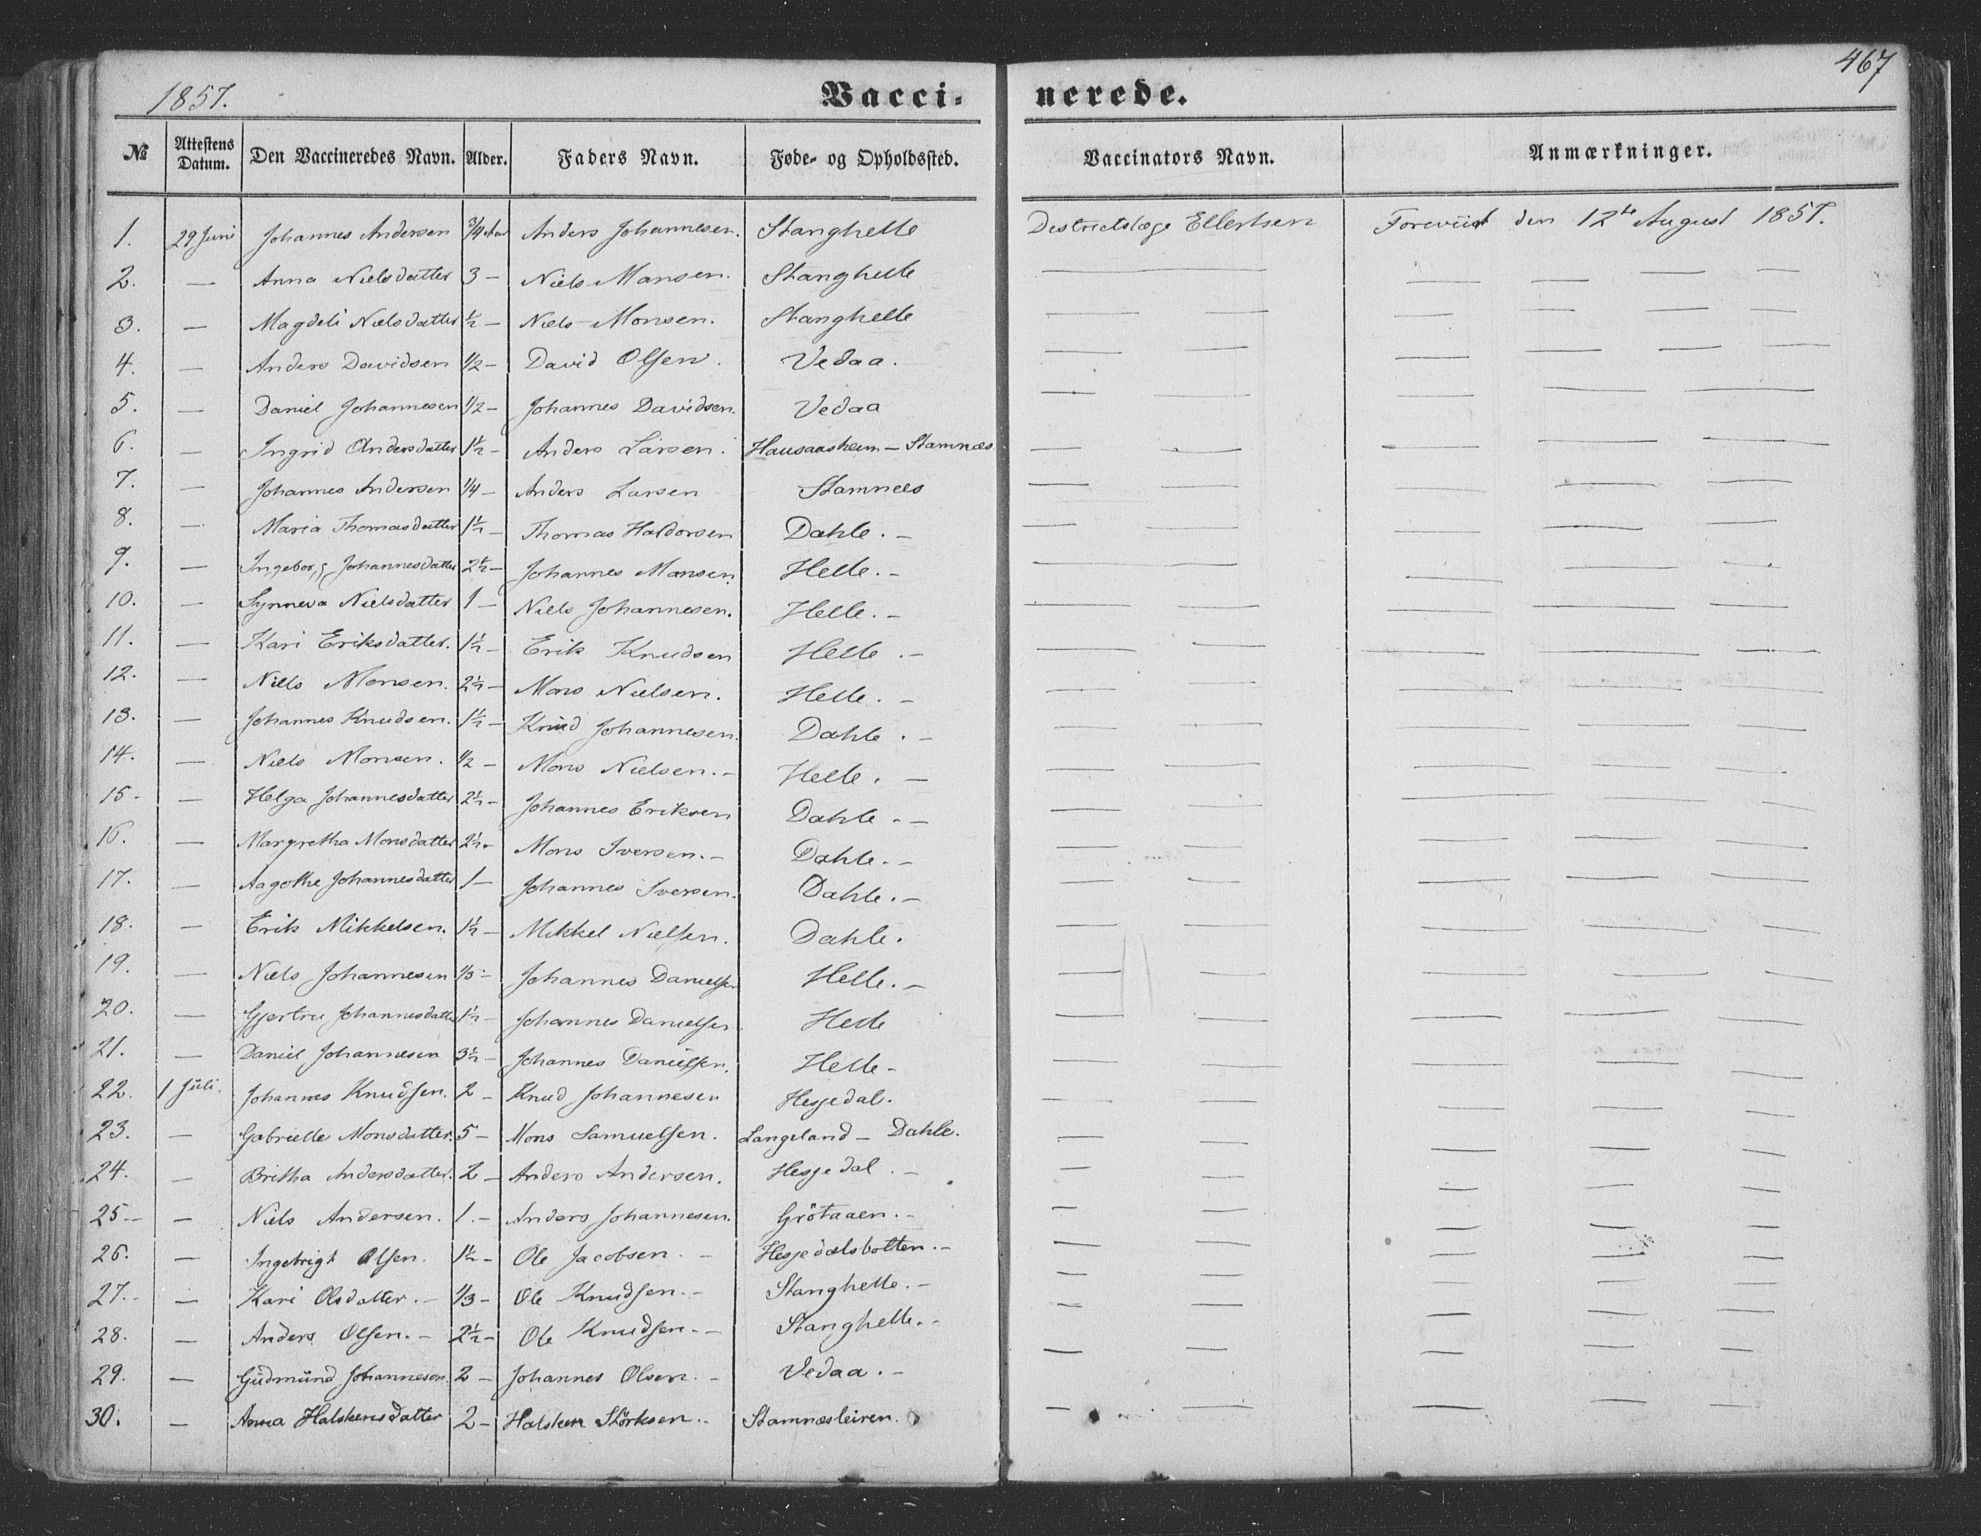 467
1857. Vaccinerede.
№ Attestens Datum. Den Vaccineredes Navn. Alder. Faders Navn. Føde- og Opholdssted. Vaccinators Navn. Anmærkninger.
1. 29 Juni Johannes Andersen 3/4 Aar Anders Johannesen. Stanghelle Destrictslæge Ellertsen Foreviist den 12te August 1857.
2. — Anna Nielsdatter 3 — Niels Mansen. Stanghelle — — — — —
3. — Magdeli Nielsdatter 1/2 — Niels Monsen. Stanghelle — — — — — —
4. — Anders Davidsen 1/2 — David Olsen. Vedaa. — — — — — —
5. — Daniel Johannesen 1/2 — Johannes Davidsen. Vedaa — — — —
6. — Ingrid Andersdatter 1 1/2 — Anders Larsen. Hausaasheim — Stamnæs — — — — —
7. — Johannes Andersen 1/4 — Anders Larsen Stamnees — — — — —
8. — Maria Thomasdatter 1 1/2 — Thomas Haldorsen Dahle. — — — — — —
9. — Ingeborg Johannesdatter 2 1/2 — Johannes Mansen. Helle. — — — — — —
10. — Synneva Nielsdatter 1 — Niels Johannesen. Helle. — — — — — —
11. — Kari Eriksdatter. 1 1/2 — Erik Knudsen Helle. — — — — — —
12. — Niels Monsen. 2 1/2 — Mons Nielsen. Helle. — — — — — —
13. — Johannes Knudsen. 1 1/2 — Knud Johannesen. Dahle. — — — — — —
14. — Niels Monsen. 1/2 — Mons Nielsen. — Helle. — — — — — —
15. — Helga Johannesdatter 2 1/2 — Johannes Eriksen Dahle. — — — — — —
16. — Margretha Monsdatter 2 1/2 — Mons Iversen. — Dahle. — — — — — —
17. — Aagothe Johannesdatter 1 — Johannes Iversen. Dahle. — — — — — —
18. — Erik Mikkelsen. 1 1/2 — Mikkel Nielsen. Dahle. — — — — —
19. — Niels Johannesen 1/3 — Johannes Danielsen Helle. — — — — — —
20. — Gjertru Johannesdatter 1 1/2 — Johannes Danielsen Helle — — — — —
21. — Daniel Johannesen 3 1/2 — Johannes Danielsen. Helle — — — — — —
22. 1 Juli. Johannes Knudsen. 2 — Knud Johannesen Hesjedal. — — — — —
23. — Gabrielle Monsdatter. 5 — Mons Samuelsen. Langeland — Dahle. — — — — —
24. — Britha Andersdatter. 2 — Anders Andersen. Hesjedal. — — — — — —
25. — Niels Andersen. 1. — Anders Johannesen. Grötaaen. — — — — — —
26. — Ingebrigt Olsen. 1 1/2 — Ole Jacobsen. — Hesjedalsbotten. — — — — — —
27. — Kari Olsdatter. — 1/3 — Ole Knudsen. — Stanghelle. — — — — — —
28. — Anders Olsen. — 2 1/2 — Ole Knudsen. — Stanghelle. — — — — — —
29. — Gudmund Johannesen. 2 — Johannes Olsen. — Vedaa. — — — — — —
30. — Anna Halstensdatter 2 — Halsten Störksen. — Stamnæsleiren. — — — — —